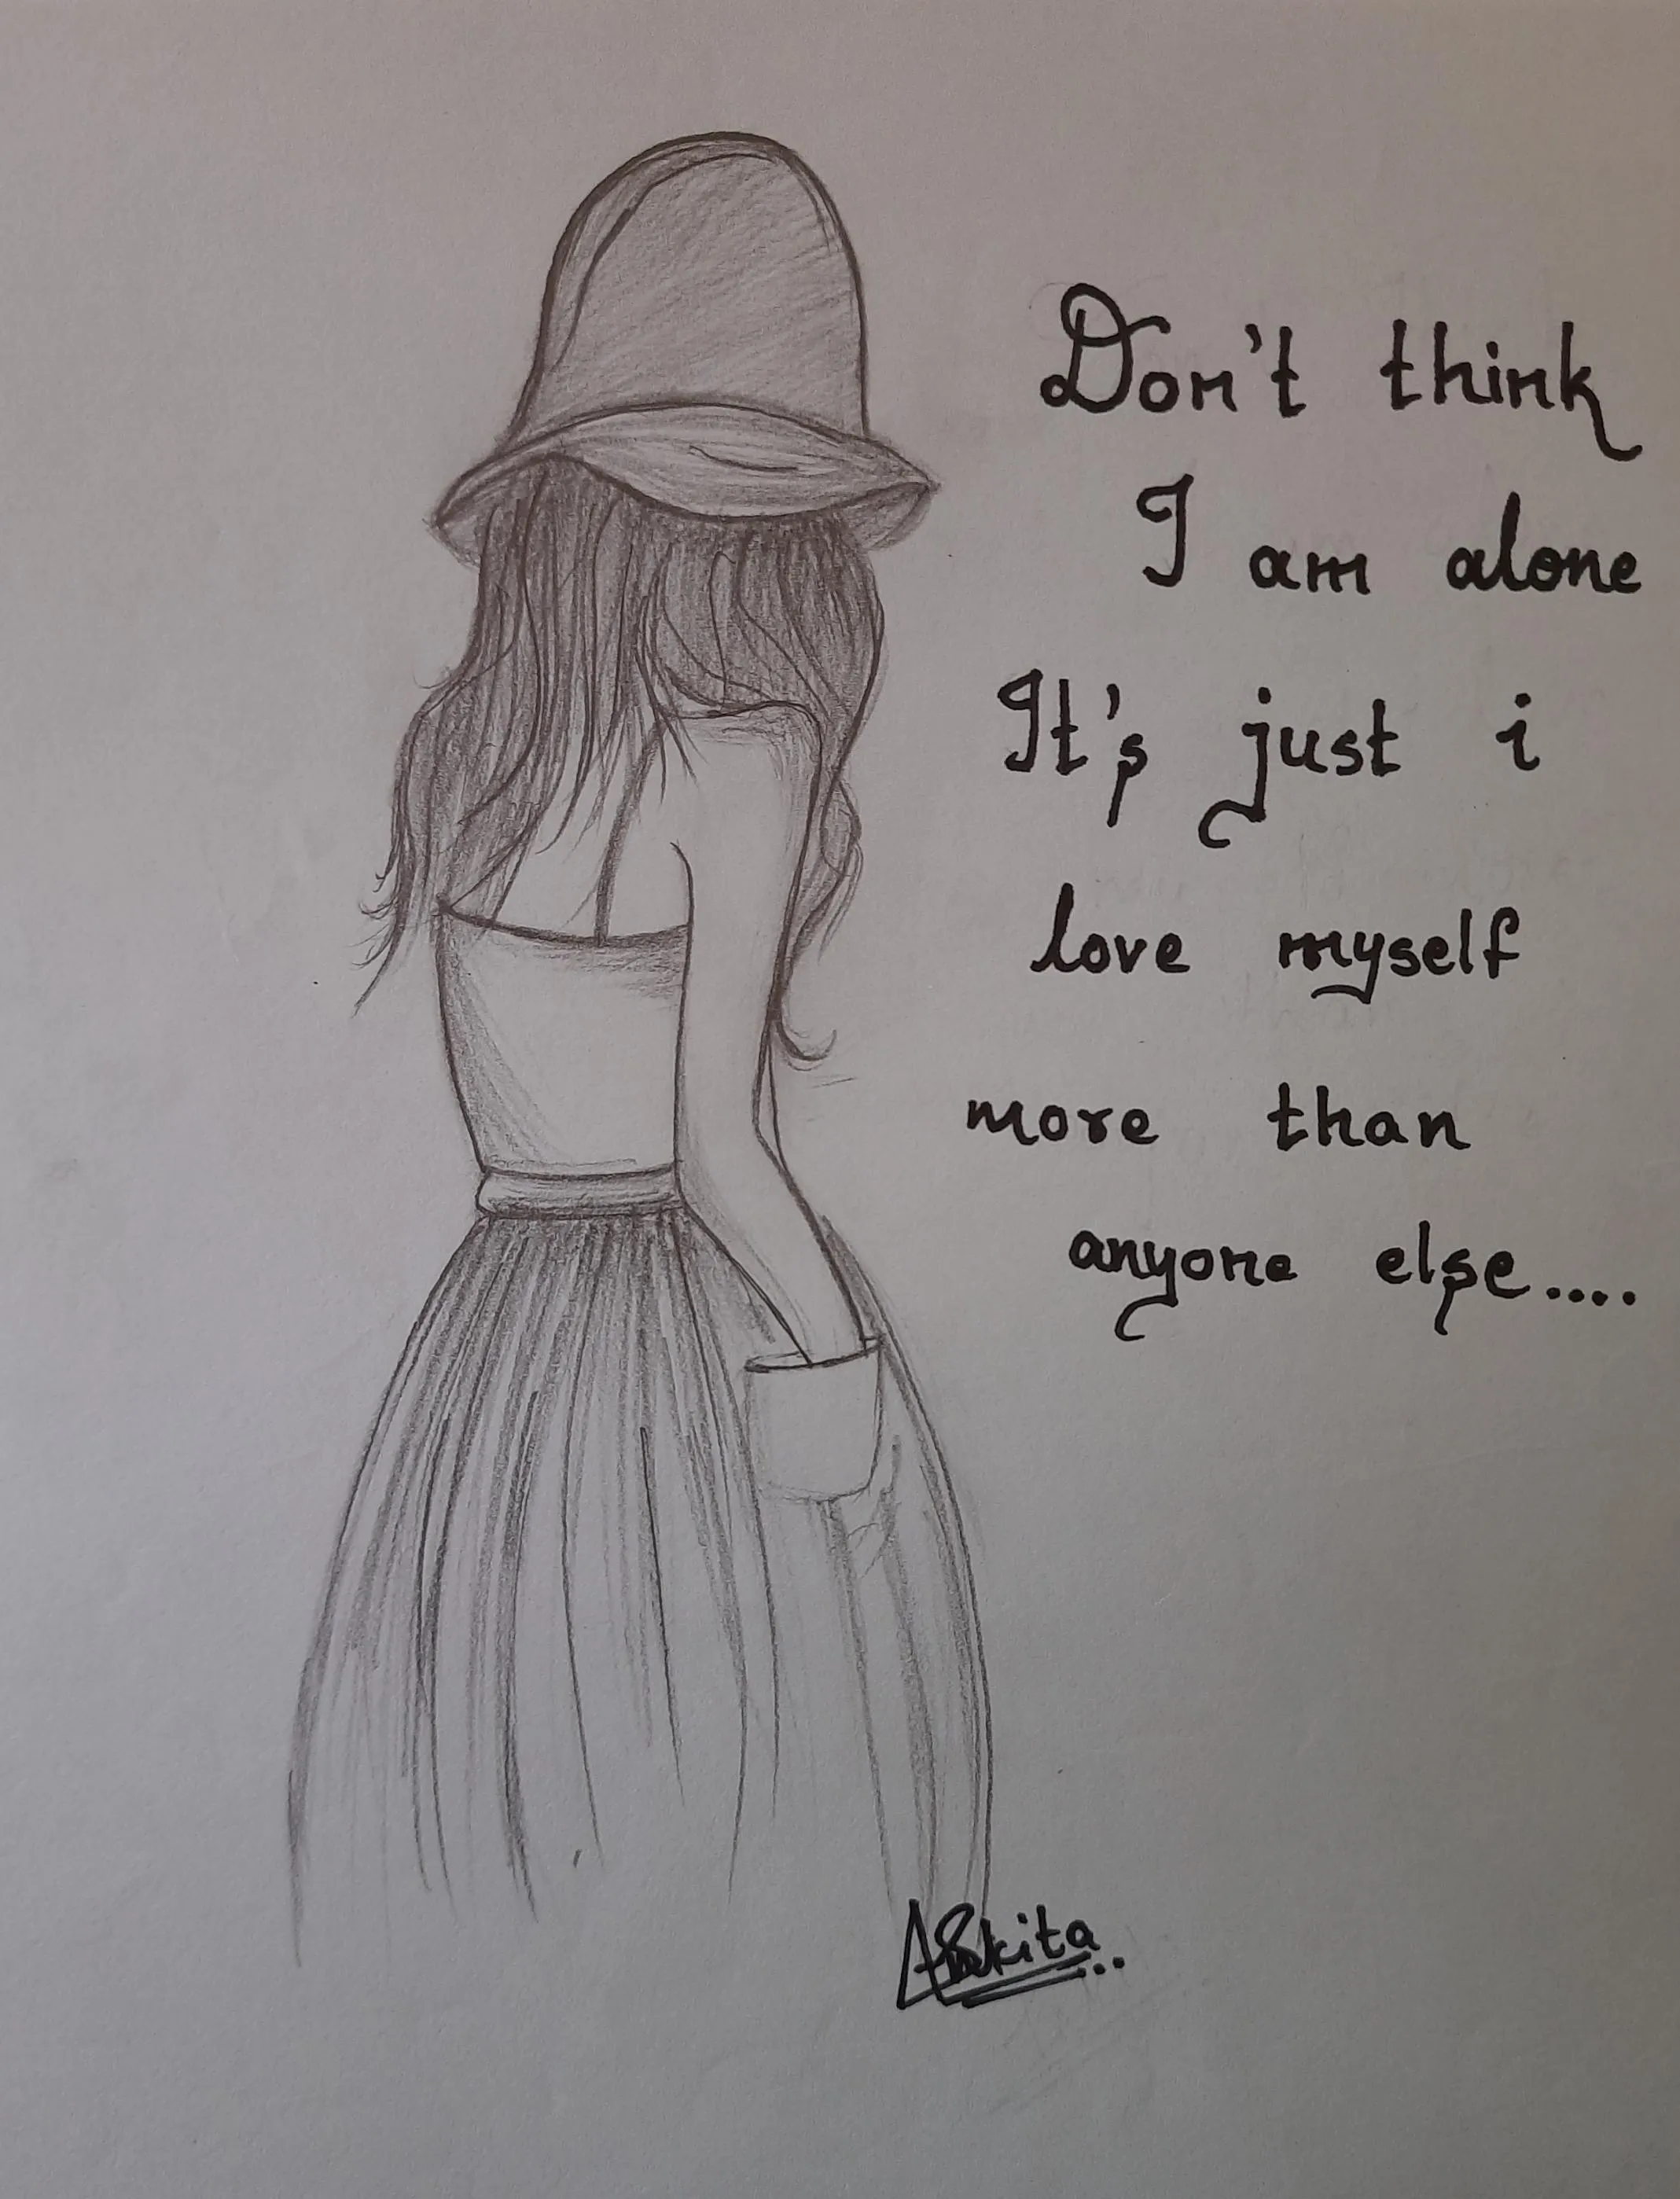 Don't think
I am alone
It's just i
love myself
more than
anyone else....